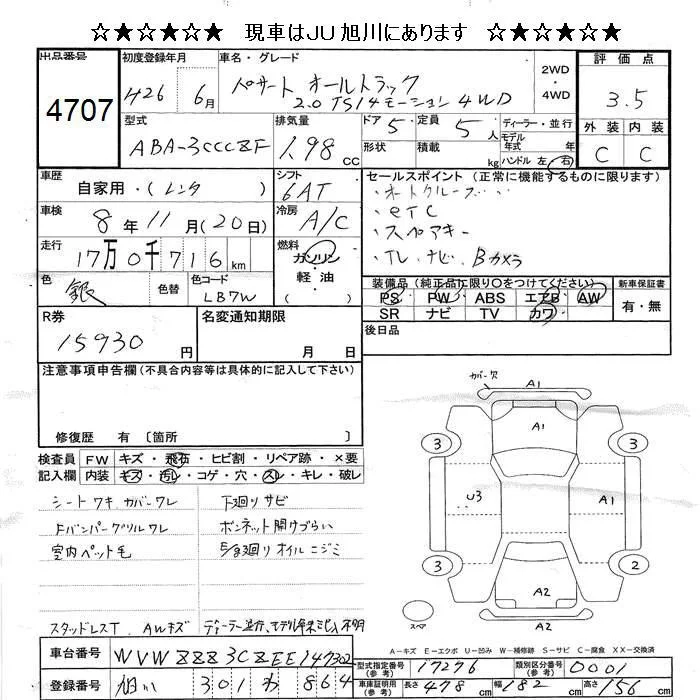 ☆★☆★☆★ 現車はJU旭川にあります ☆★☆★☆★
出品番号 4707
初度登録年月 H26 6月
車名・グレード パサート オールトラック
2.0 TSI 4モーション 4WD
2WD ・ 4WD
評価点 3.5
外装 内装
C C
型式 ABA-3CCCZF
排気量 1.98 cc
ドア 5 定員 5 人
形状 積載 kg
ディーラー・並行
モデル年式 年式
ハンドル 左・右
車歴 自家用・(レンタ )
シフト 6AT
車検 8年11月(20日)
冷房 A/C
走行 17万0千716km
燃料 ガソリン・軽油・( )
色 銀 色替 色コード LB7W
セールスポイント(正常に機能するものに限ります)
・オートクルーズ
・ETC
・スペアキー
・TV、ナビ、Bカメラ
装備品(純正品に限り○をつけてください) 新車保証書
PS PW ABS エアB AW 有・無
SR ナビ TV カワ
後日品
R券 15930円
名変通知期限 月 日
注意事項申告欄(不具合内容等は具体的に記入して下さい)
修復歴 有 〔箇所 〕
検査員記入欄
FW キズ・飛石・ヒビ割・リペア跡・×要
内装 キズ・汚レ・コゲ・穴・スレ・キレ・破レ
シートワキ カバーワレ 下廻りサビ
Fバンパーグリルワレ ボンネット開けづらい
室内ペット毛 E/g廻りオイルニジミ
スタッドレスT、AWキズ ディーラー並行、モデル年式記入不明
カバー欠 A1
A1
3 3
U3 A1
3 2
A2
A2
スペア
A－キズ E－エクボ U－凹み W－補修跡 S－サビ C－腐食 XX－交換済
車台番号 WVWZZZ3CZEE147302
登録番号 旭川 301 わ 864
型式指定番号(参考) 17276 類別区分番号(参考) 0001
車庫証明用(参考) 長さ 478cm 幅 182cm 高さ 156cm